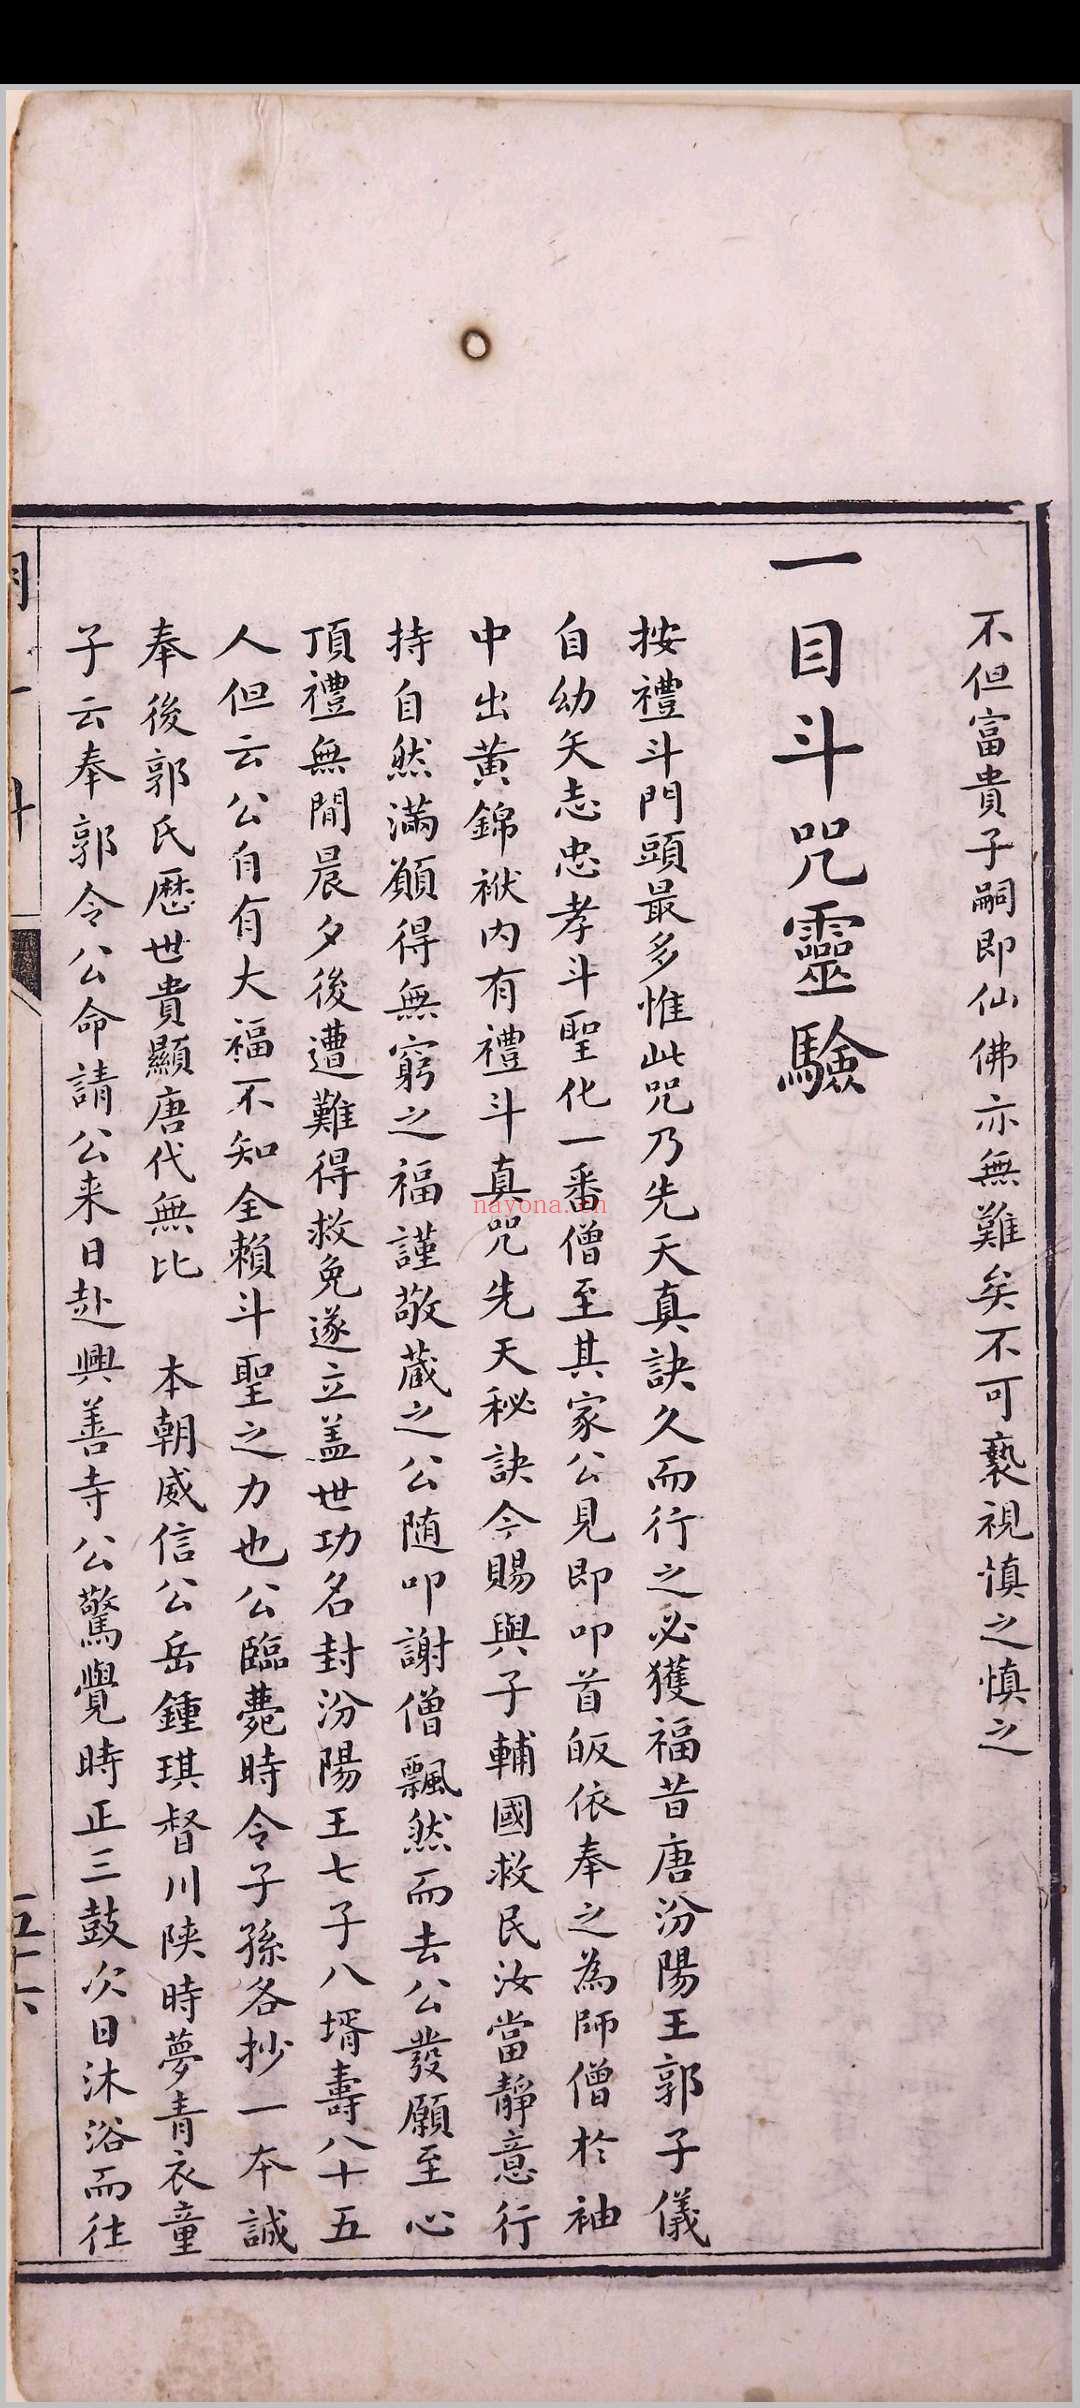 不但富貴子嗣即仙佛亦無難矣不可褻視慎之慎之
一目斗咒靈驗
按禮斗門頭最多惟此咒乃先天真訣久而行之必獲福昔唐汾陽王郭子儀
自幼矢志忠孝斗聖化一番僧至其家公見即叩首皈依奉之為師僧於袖
中出黃錦袱內有禮斗真咒先天秘訣今賜與子輔國救民汝當靜意行
持自然滿願得無窮之福謹敬藏之公随叩謝僧飄然而去公發願至心
頂禮無間晨夕後遭難得救免遂立盖世功名封汾陽王七子八壻壽八十五
人但云公自有大福不知全賴斗聖之力也公臨薨時令子孫各抄一本誠
奉後郭氏歷世貴顯唐代無比 本朝威信公岳鍾琪督川陝時夢青衣童
子云奉郭令公命請公来日赴興善寺公驚覺時正三鼓次日沐浴而往
五十六
nayona.cn